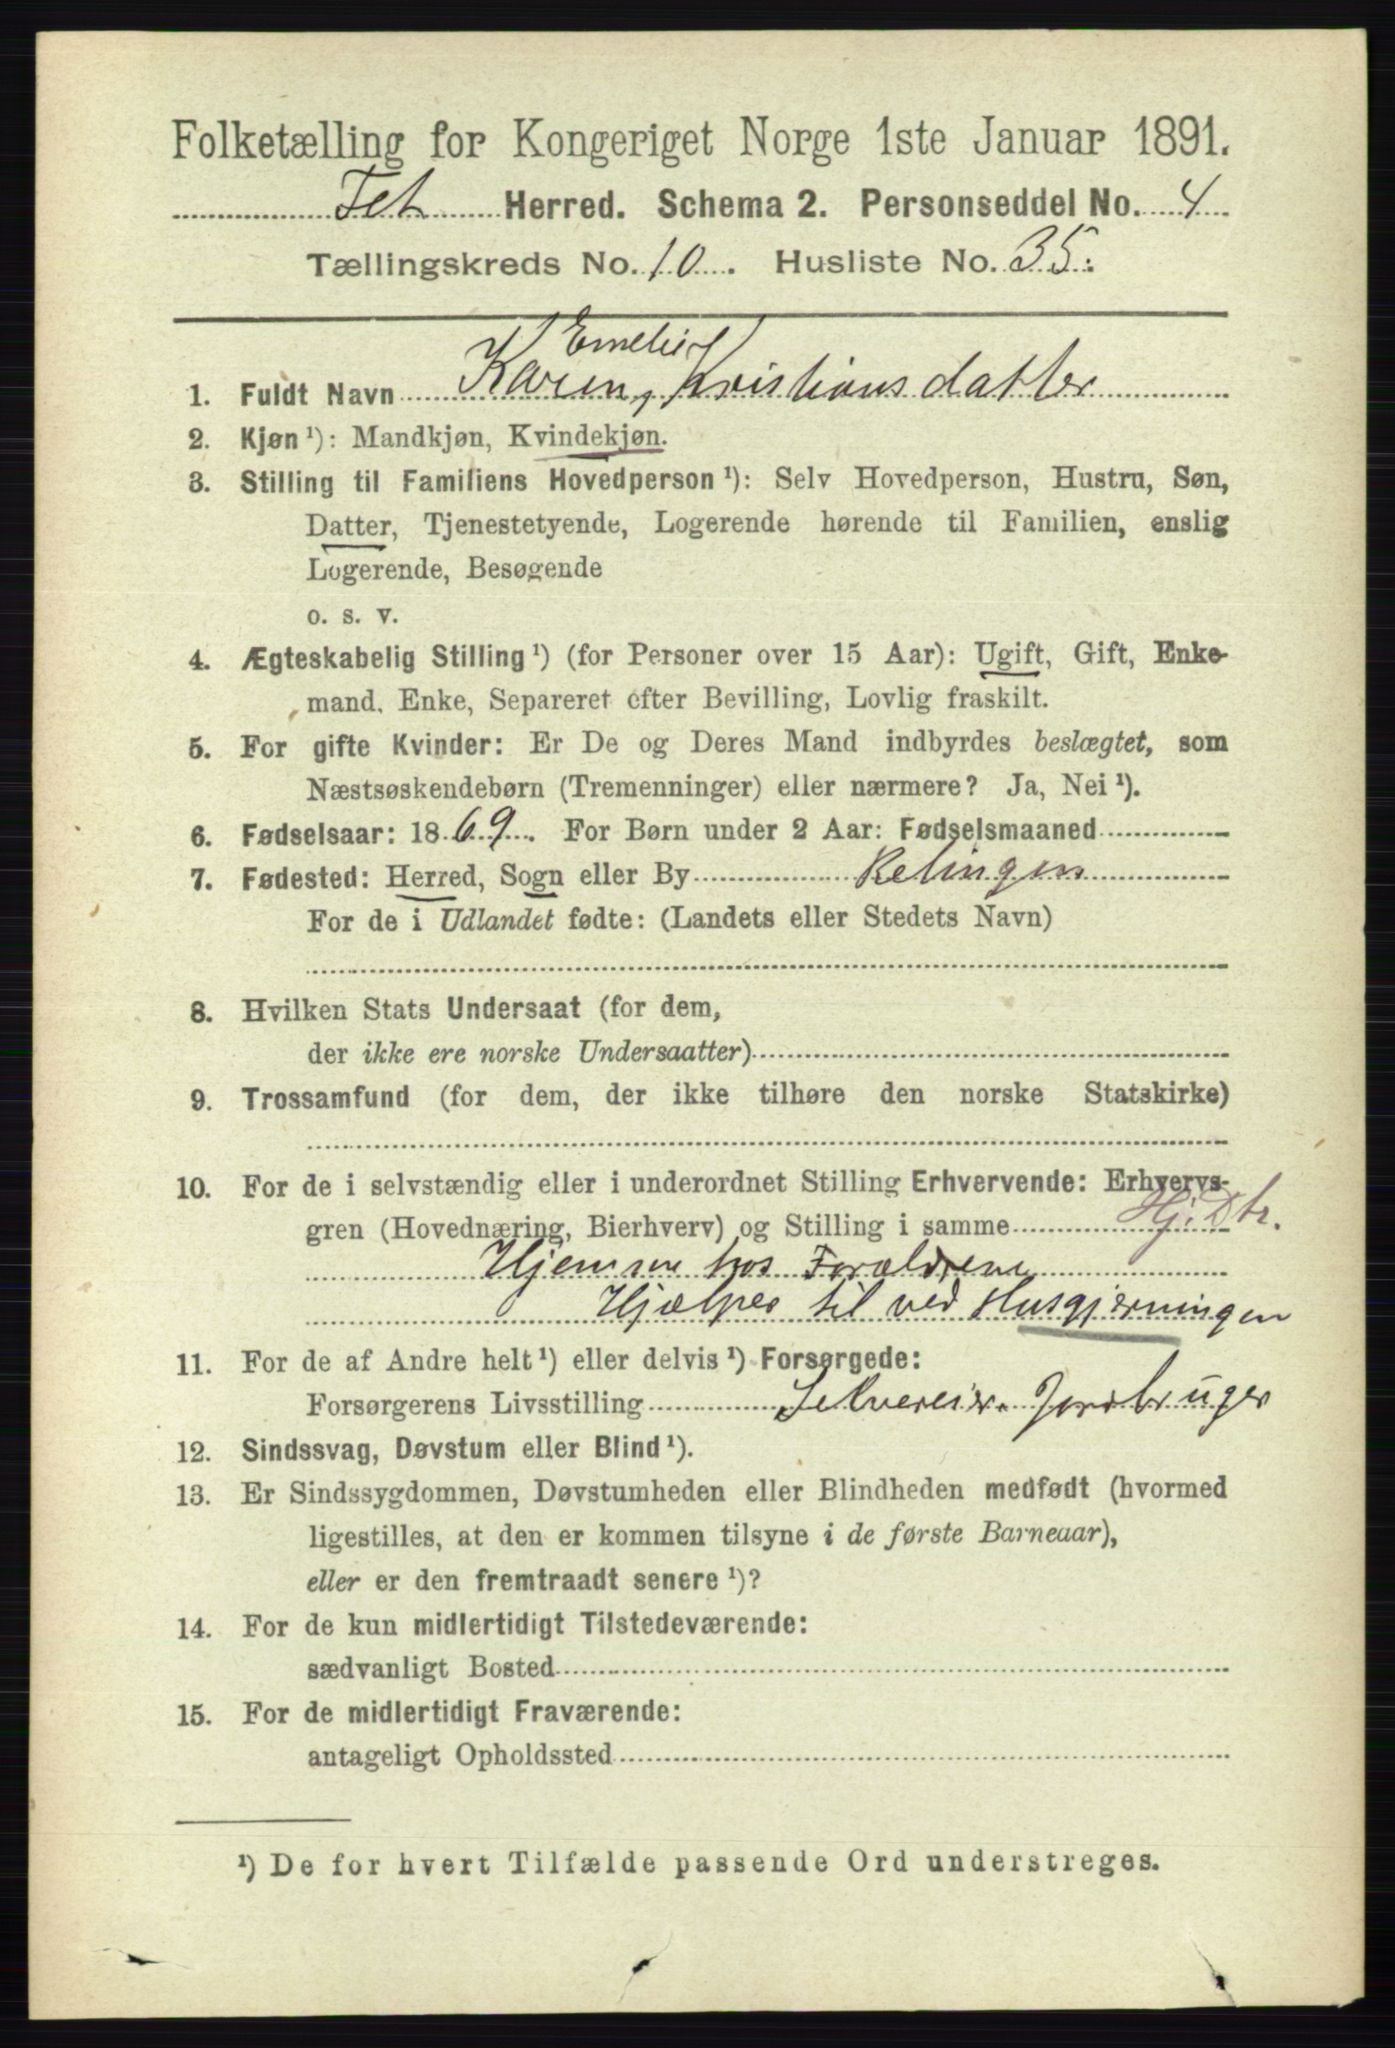 Folketælling for Kongeriget Norge 1ste Januar 1891.
Fet Herred. Schema 2. Personseddel No. 4
Tællingskreds No. 10. Husliste No. 35.
Emelie
1. Fuldt Navn Karen, Kristiansdatter
2. Kjøn ¹): Mandkjøn, Kvindekjøn.
3. Stilling til Familiens Hovedperson ¹): Selv Hovedperson, Hustru, Søn,
Datter, Tjenestetyende, Logerende hørende til Familien, enslig
Logerende, Besøgende
o. s. v.
4. Ægteskabelig Stilling ¹) (for Personer over 15 Aar): Ugift, Gift, Enke-
mand, Enke, Separeret efter Bevilling, Lovlig fraskilt.
5. For gifte Kvinder: Er De og Deres Mand indbyrdes beslægtet, som
Næstsøskendebørn (Tremenninger) eller nærmere? Ja, Nei ¹).
6. Fødselsaar: 1869. For Børn under 2 Aar: Fødselsmaaned
7. Fødested: Herred, Sogn eller By Relingen
For de i Udlandet fødte: (Landets eller Stedets Navn)
8. Hvilken Stats Undersaat (for dem,
der ikke ere norske Undersaatter)
9. Trossamfund (for dem, der ikke tilhøre den norske Statskirke)
10. For de i selvstændig eller i underordnet Stilling Erhvervende: Erhvervs-
gren (Hovednæring, Bierhverv) og Stilling i samme Hj. Dtr.
Hjemme hos Forældrene
Hjælper til ved Husgjerningen
11. For de af Andre helt ¹) eller delvis ¹) Forsørgede:
Forsørgerens Livsstilling Selveier. Jordbruger
12. Sindssvag, Døvstum eller Blind ¹).
13. Er Sindssygdommen, Døvstumheden eller Blindheden medfødt (hvormed
ligestilles, at den er kommen tilsyne i de første Barneaar),
eller er den fremtraadt senere ¹)?
14. For de kun midlertidigt Tilstedeværende:
sædvanligt Bosted
15. For de midlertidigt Fraværende:
antageligt Opholdssted
¹) De for hvert Tilfælde passende Ord understreges.